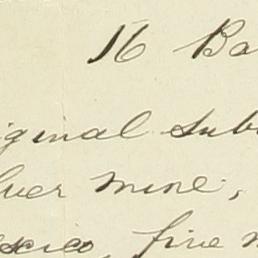 16 Ba
iginal sub
lver mine,
exico, five m